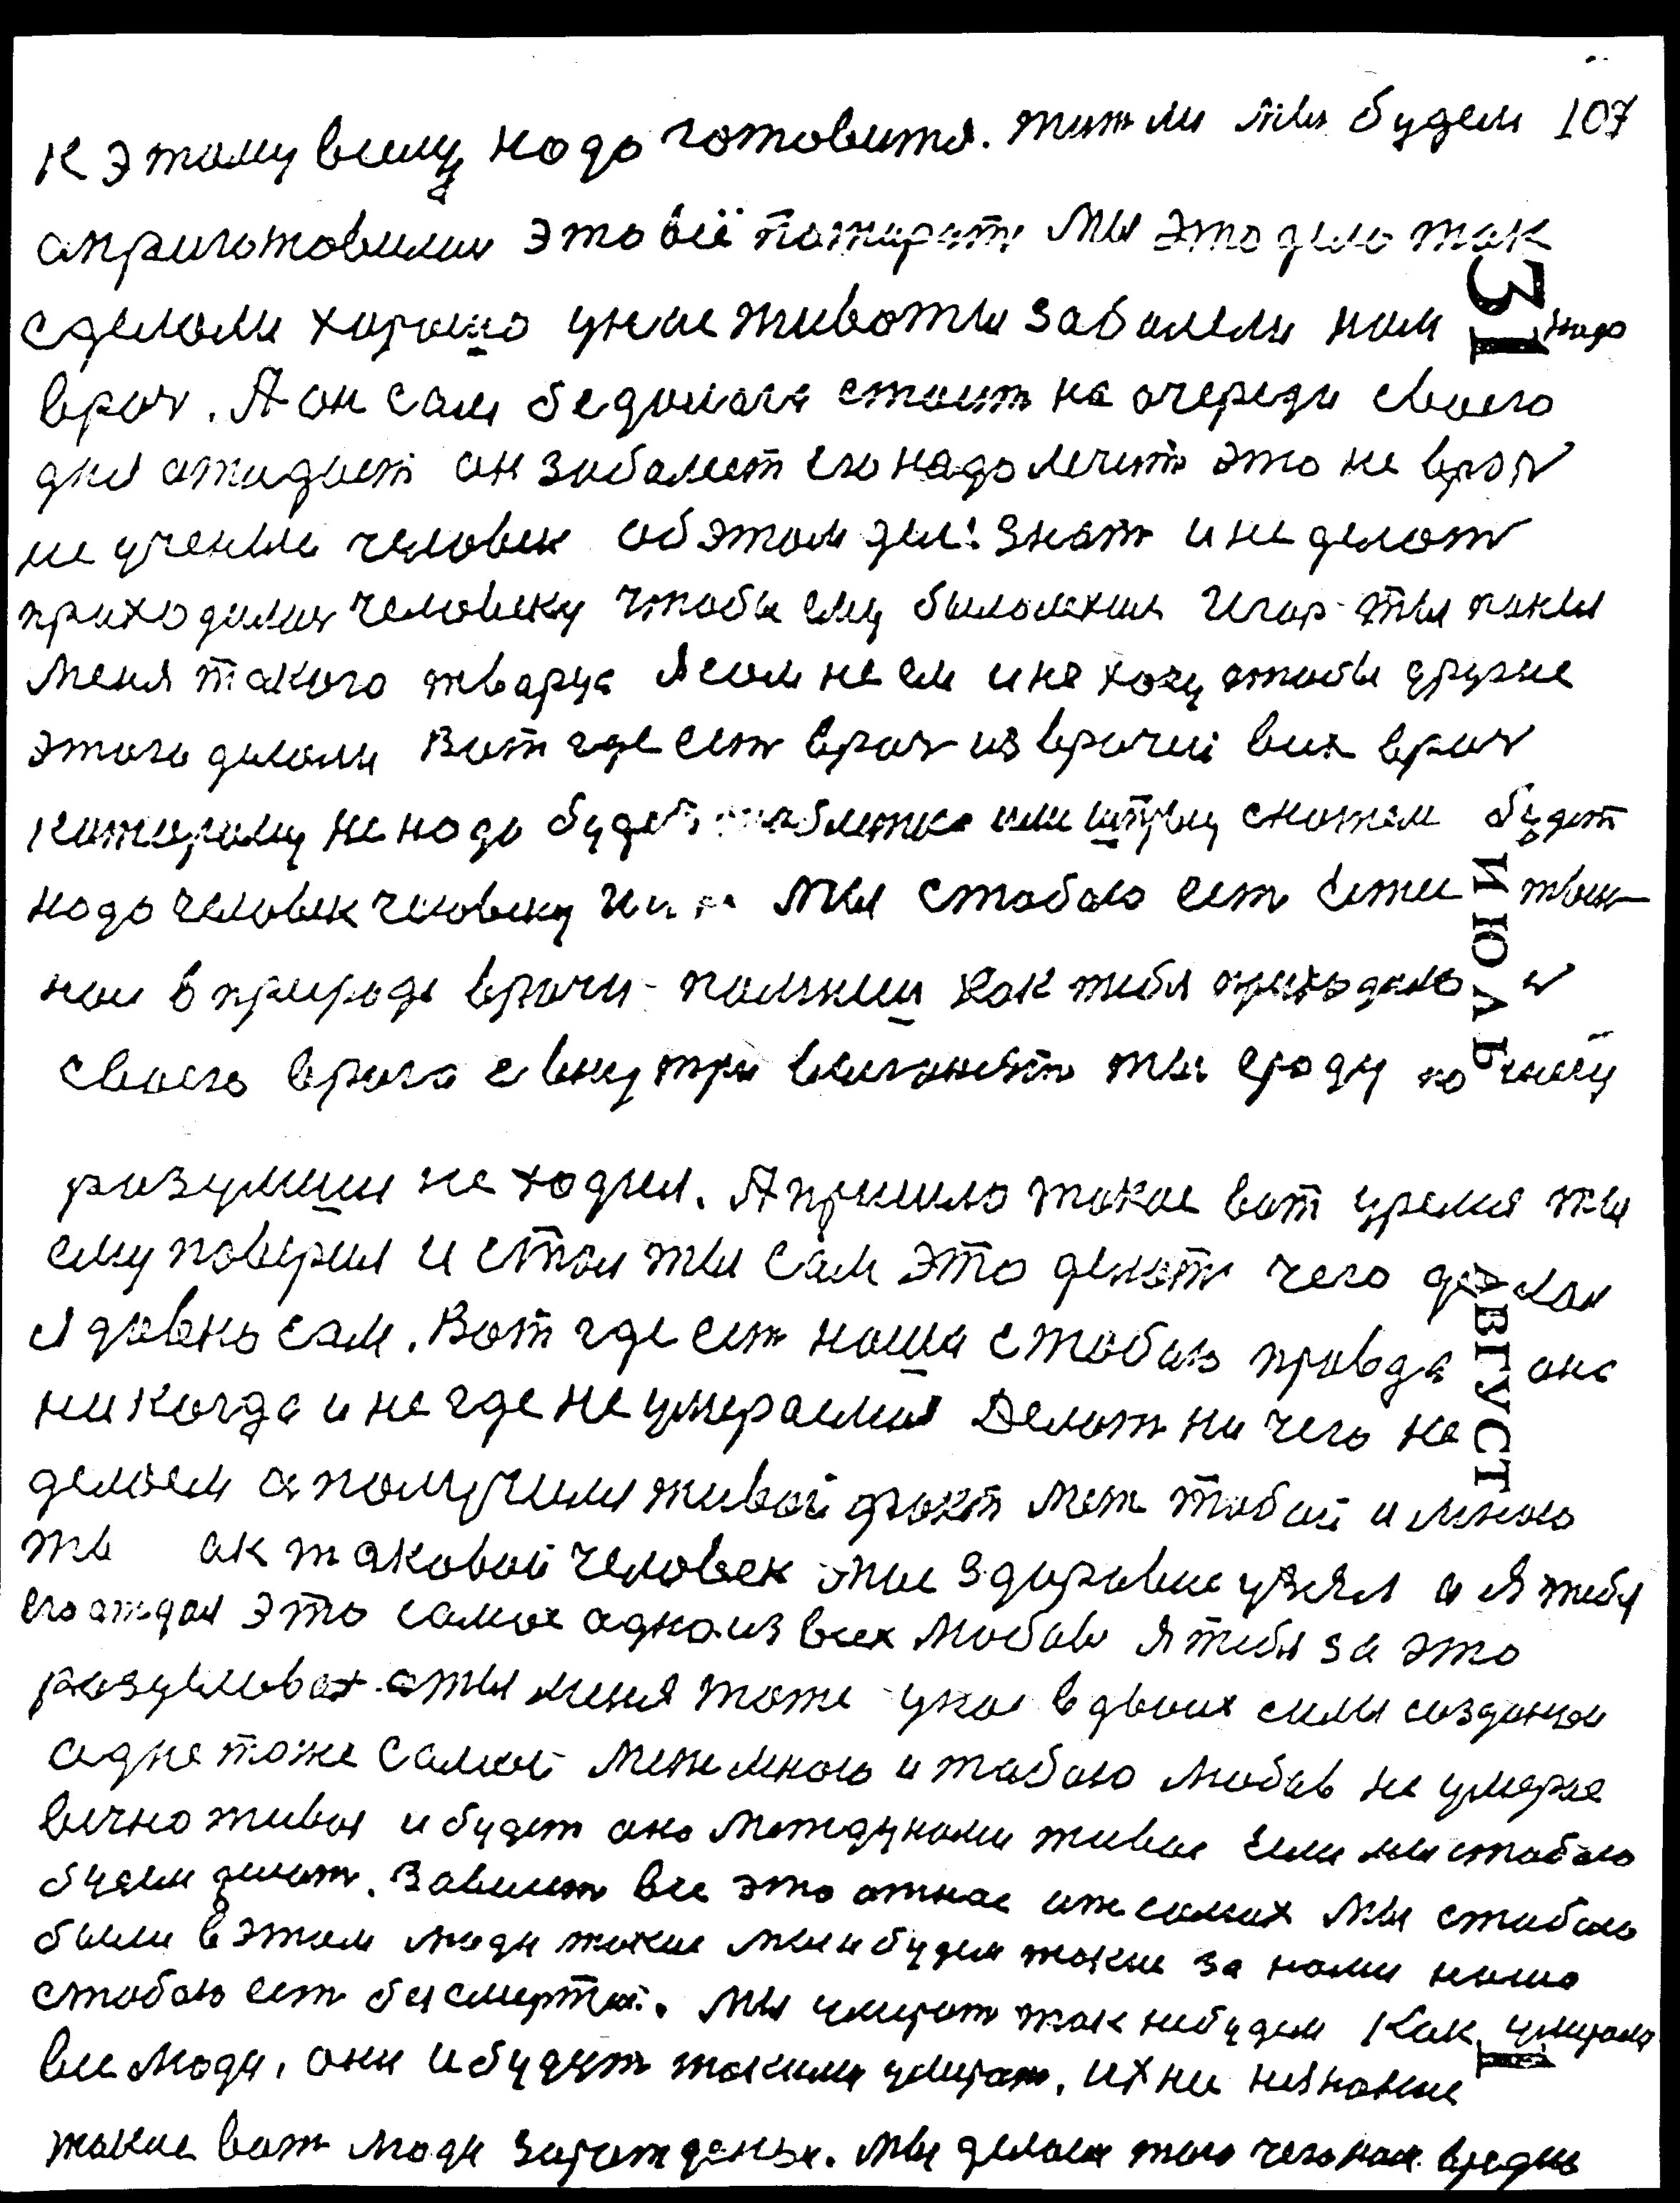 К этому всему надо готовится. тижли мы будем 107
априготовилис это всё пажират Мы это дело так
сделоли харошо унас животы заболели нам надо
врач. А он сам бедолага стоит на очереди своего
дня ажидает он заболеет его надо лечит это не врач
не ученый человек об этом деле знат и не делат
приходилас человеку чтобы ему былолехша Игор ты поня
меня такого тварца Я сам не ем и не хочу чтобы другие
этого делоли Вот где ест врач из врачей всих врач
катораму не надо будет таблетка или штрву скожем будет
надо человек человеку Мы стобою ест естествен-
наи в природе врачи помниш как тибя приходило с
своего врага свнутри выгонят ты сроду по
разумиш не ходил. А пришло такое вот уремя ты
ему поверил и стал ты сам это делат чего делал
я давно сам. Вот где ест наша стобою правда она
никогда и не где не умераемая Делат ни чего не
делоем а получили живой факт меж тобой и мною
ты как таковой человек мае здоровие узял а я тибя
его атдал это самое адно из всех любов я тибя за это
разумиват аты миня тоже унас вдвоих силы созданаи
адне тоже самаи меж мною и табою любов не умерае
вечно живая и будет ана между нами живая Если мы стобою
будем делат. Зависит все это атнас ат самих Мы стобою
были в этом люди такие мы и будем такие за нами наша
стобою ест бисмертия. Мы умират так небудем Как умирали
все люди, они и будут такими умират. ихние незнание
такие вот люди зараждены. Мы делоем тоео чего нам вредно
31
ИЮЛЬ
АВГУСТ
1